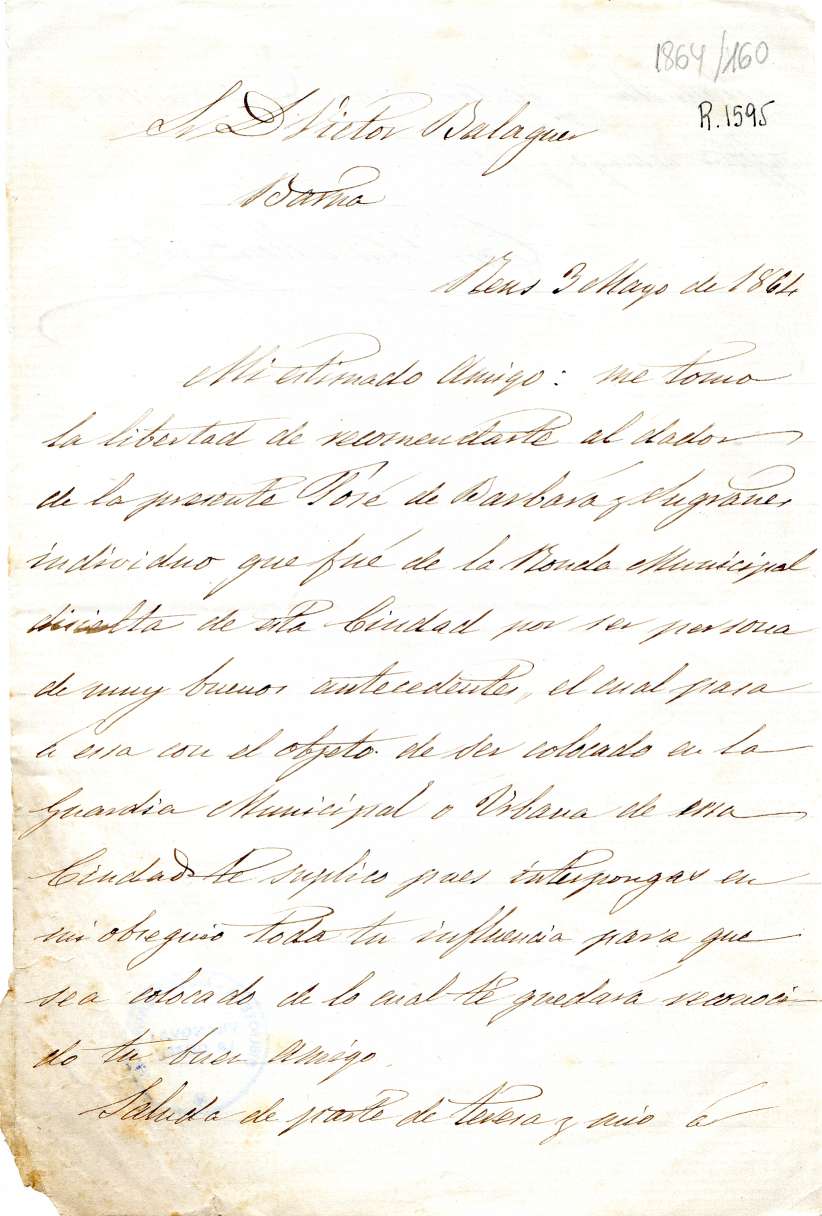 1864/160
R.1595
Sr D Victor Balaguer
Barna
Reus 3 Mayo de 1864
Mi estimado Amigo: me tomo
la libertad de recomendarte al dador
de la presente José de Barbará y Sugrañes
individuo que fué de la Ronda Municipal
disielta de esta Ciudad por ser persona
de muy buenos antecedentes, el cual pasa
á esa con el objeto de ser colocado en la
Guardia Municipal o Urbana de esa
Ciudad te suplico pues interpongas en
mi obsequio toda tu influencia para que
sea colocado de lo cual té quedará reconoci-
do tu buen Amigo.
Saluda de parte de Teresa y mio á